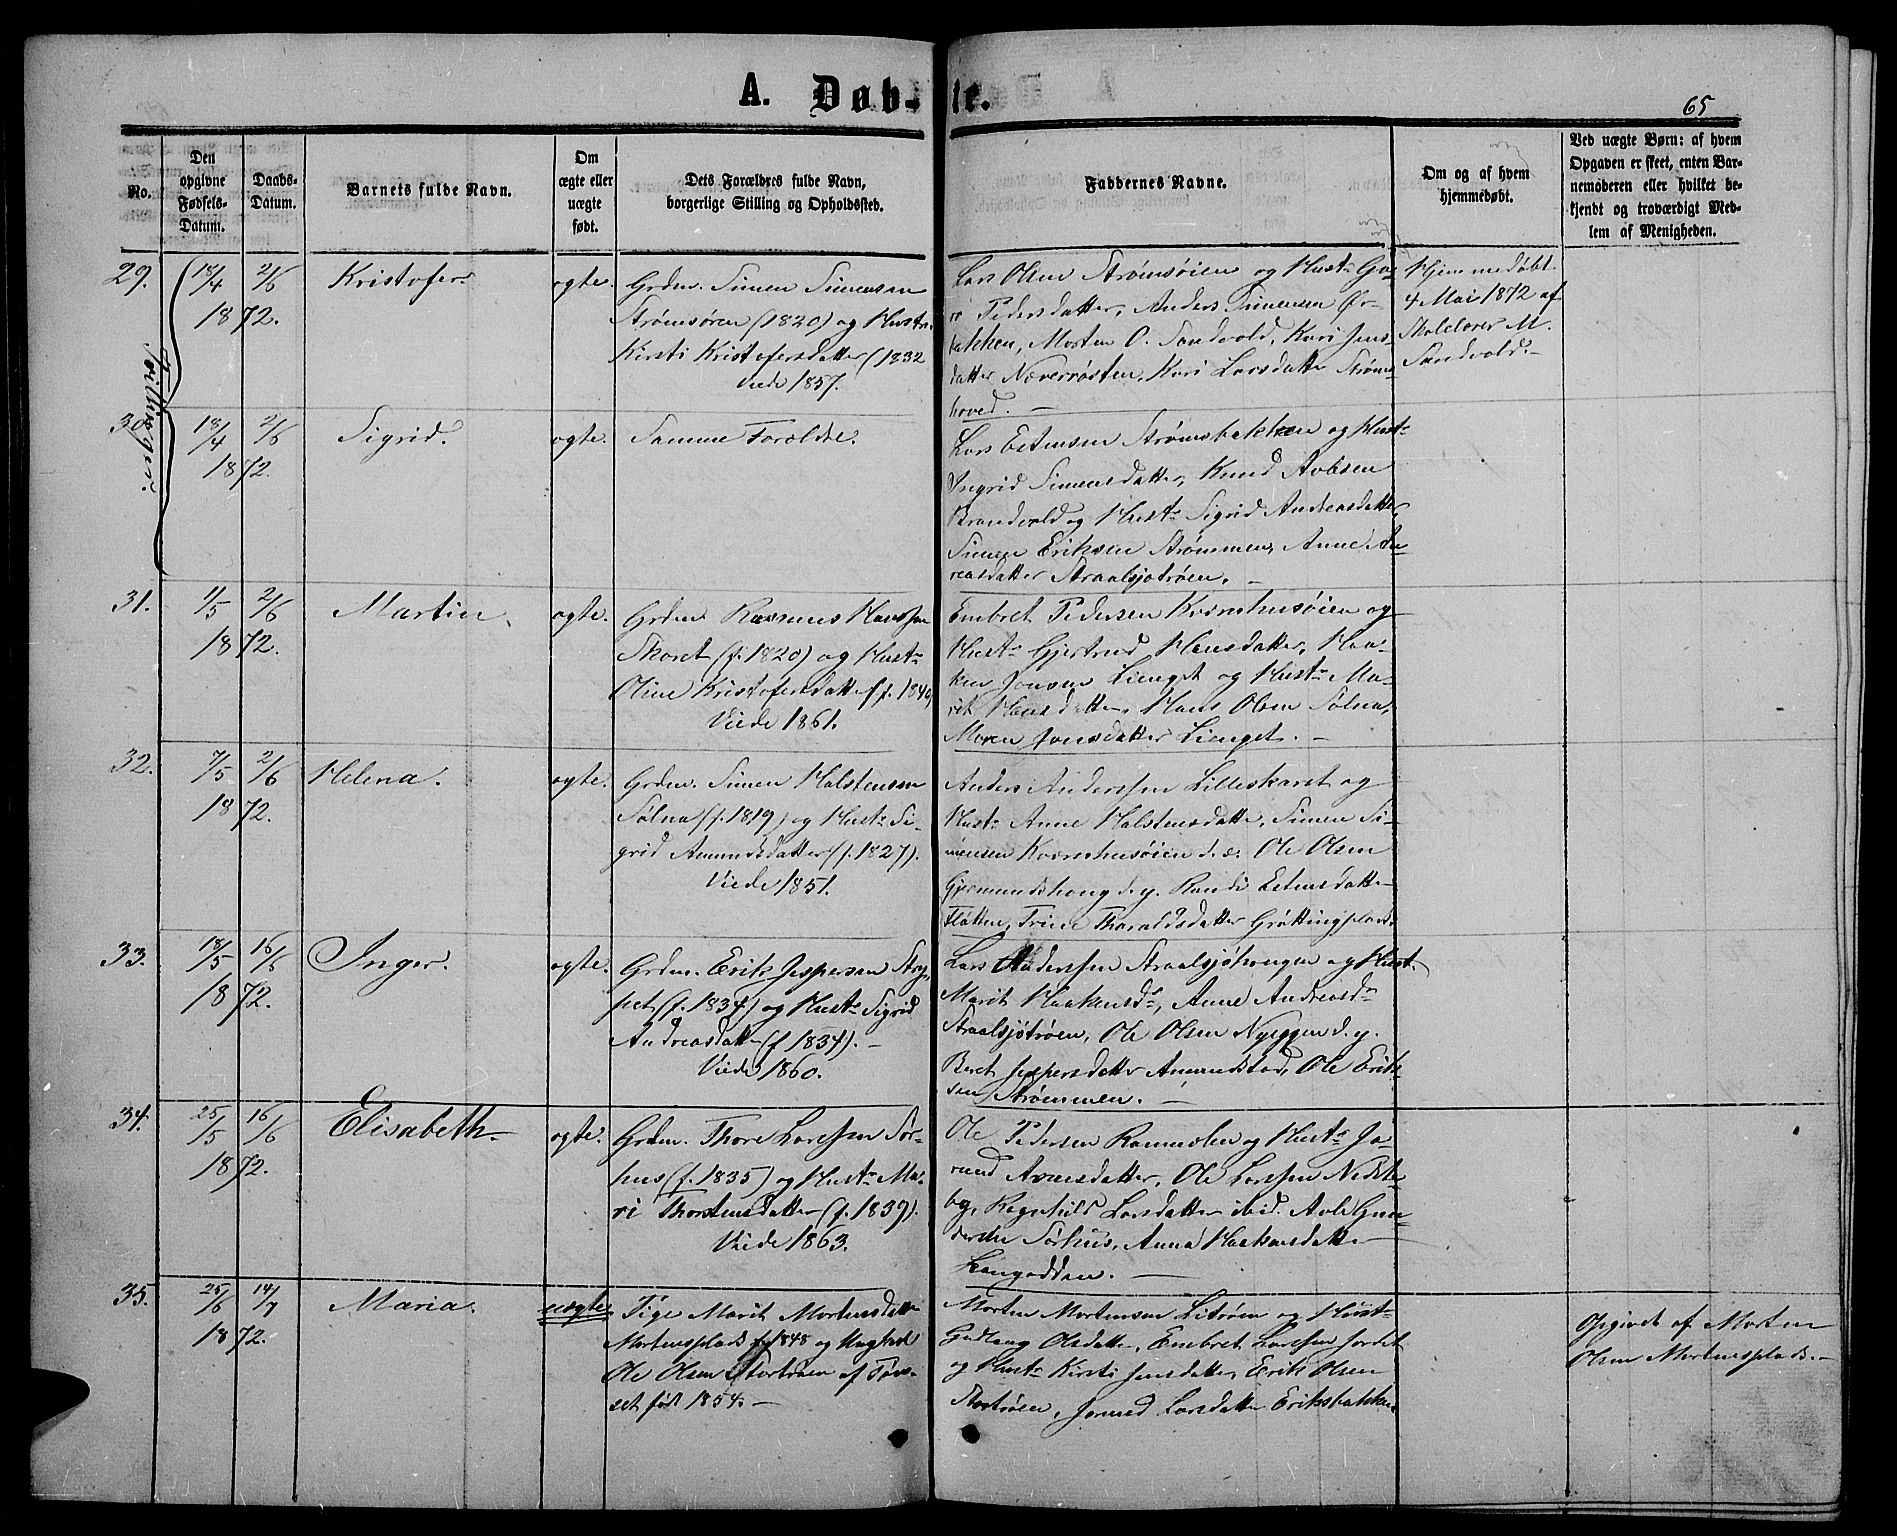 A. Døb-te.
65
No.
Den opgivne Fødsels-Datum.
Daabs-Datum.
Barnets fulde Navn.
Om ægte eller uægte født.
Dets Forældres fulde Navn, borgerlige Stilling og Opholdssted.
Faddernes Navne.
Om og af hvem hjemmedøbt.
Ved uægte Børn: af hvem Opgaven er skeet, enten Barnemoderen eller hvilket bekjendt og troværdigt Medlem af Menigheden.
Tvillinger.
29.
18/4 1872.
2/6
Kristofer.
ægte.
Grdm. Simen Simensen
Strømsøien (1820) og Hustr.
Kirsti Kristofersdatter (1832
Viede 1857.
Lars Olsen Strømsøien og Hustr Gu-
ro Pedersdatter, Anders Simensen Ør-
bakken, Morten O. Sandvold, Kari Jens-
datter Neverrøsten, Kari Larsdatter Strøms-
hoved. —
Hjemmedøbt
4 Mai 1872 af
Skolelærer M.
Sandvold. —
30.
18/4 1872.
2/6
Sigrid.
ægte.
Samme Forældre.
Lars Estensen Strømsbakken og Hustr
Ingrid Simensdatter, Knud Avlesen
Brandvold og Hustr Sigrid Andreasdatter,
Simen Eriksen Strømmen, Anne An-
reasdatter Straalsjøtrøen. —
31.
1/5 1872.
2/6
Martin.
ægte.
Grdm. Rasmus Hanssen
Moret (f. 1820) og Hustr
Oline Kristofersdatter (f. 1840
Viede 1861.
Embret Pedersen Kværnhusøien og
Hustr Gjertrud Hansdatter, Haa-
ken Jonsen Lienget og Hustr Ma-
rit Hansdatter, Hans Olsen Sølna,
Maren Jonsdatter Lienget. —
32.
7/5 1872.
2/6
Helena.
ægte.
Grdm. Simen Halstensen
Sølna (f. 1819) og Hustr Si-
grid Amundsdatter (f. 1827).
Viede 1851.
Anders Anderssen Lilleskaret og
Hustr Anne Halstensdatter, Simen Si-
mensen Kværnhusøien d. æ. Ole Olsen
Gjermundshaug d. y. Randi Estensdatter
Flatten, Trine Tharaldsdatter Grøttingplads.
33.
18/5 1872.
16/6
Inger.
ægte.
Grdm. Erik Jespersen Stry-
het (f. 1834) og Hustr Sigrid
Andreasdatter (f 1834). —
Viede 1860.
Lars Anderssen Straalsjøhougen og Hustr
Marit Haakensdr, Anne Andreasdr
Straalsjøtrøen, Ole Olsen Nyeggen d. y.
Beret Jespersdatter Amundstad, Ole Erik-
sen Strømmen. —
34.
25/5 1872.
16/6
Elisabeth.
ægte.
Grdm. Thore Larssen Sør-
hus (f. 1835) og Hustr Ma-
ri Thorstensdatter (f. 1839).
Viede 1863.
Ole Pedersen Ramsølen og Hustr Jo-
rund Arnesdatter, Ole Larssen Nedst-
by, Ragnhild Larsdatter ibid. Avle Gun-
dersen Sørhus, Anna Haakensdatter
Langodden. —
35.
25/6 1872.
14/7
Maria.
uægte
Pige Marit Mortensdatter
Mortensplads f. 1848 og Ungkarl
Ole Olsen Stortrøen af Tøn-
set født 1854. —
Morten Mortensen Litrøen og Hustr
Gudlaug Olsdatter, Embret Larssen Jordet
og Hustr Kirsti Jensdatter, Erik Olsen
Stortrøen, Jorund Larsdatter Eriksbakken
Opgivet af Morten
Olsen Mortensplads. —